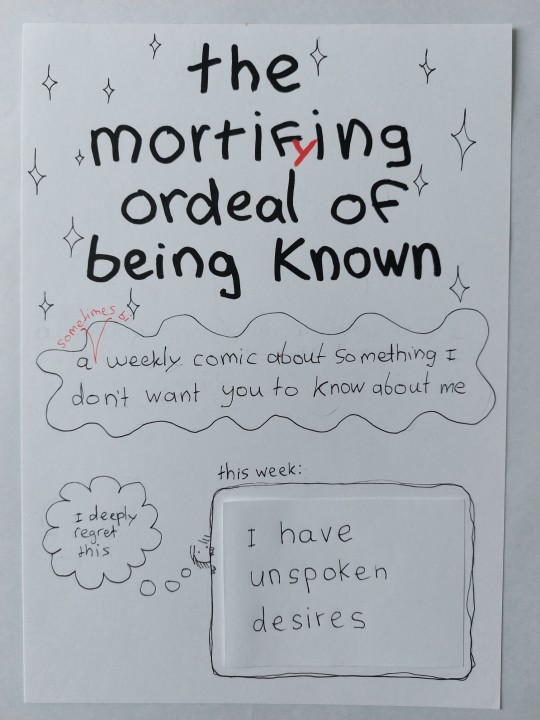 the
mortifying
ordeal of
being known
sometimes bi
a weekly comic about something I
don't want you to know about me
this week:
I deeply
regret
this
I have
unspoken
desires